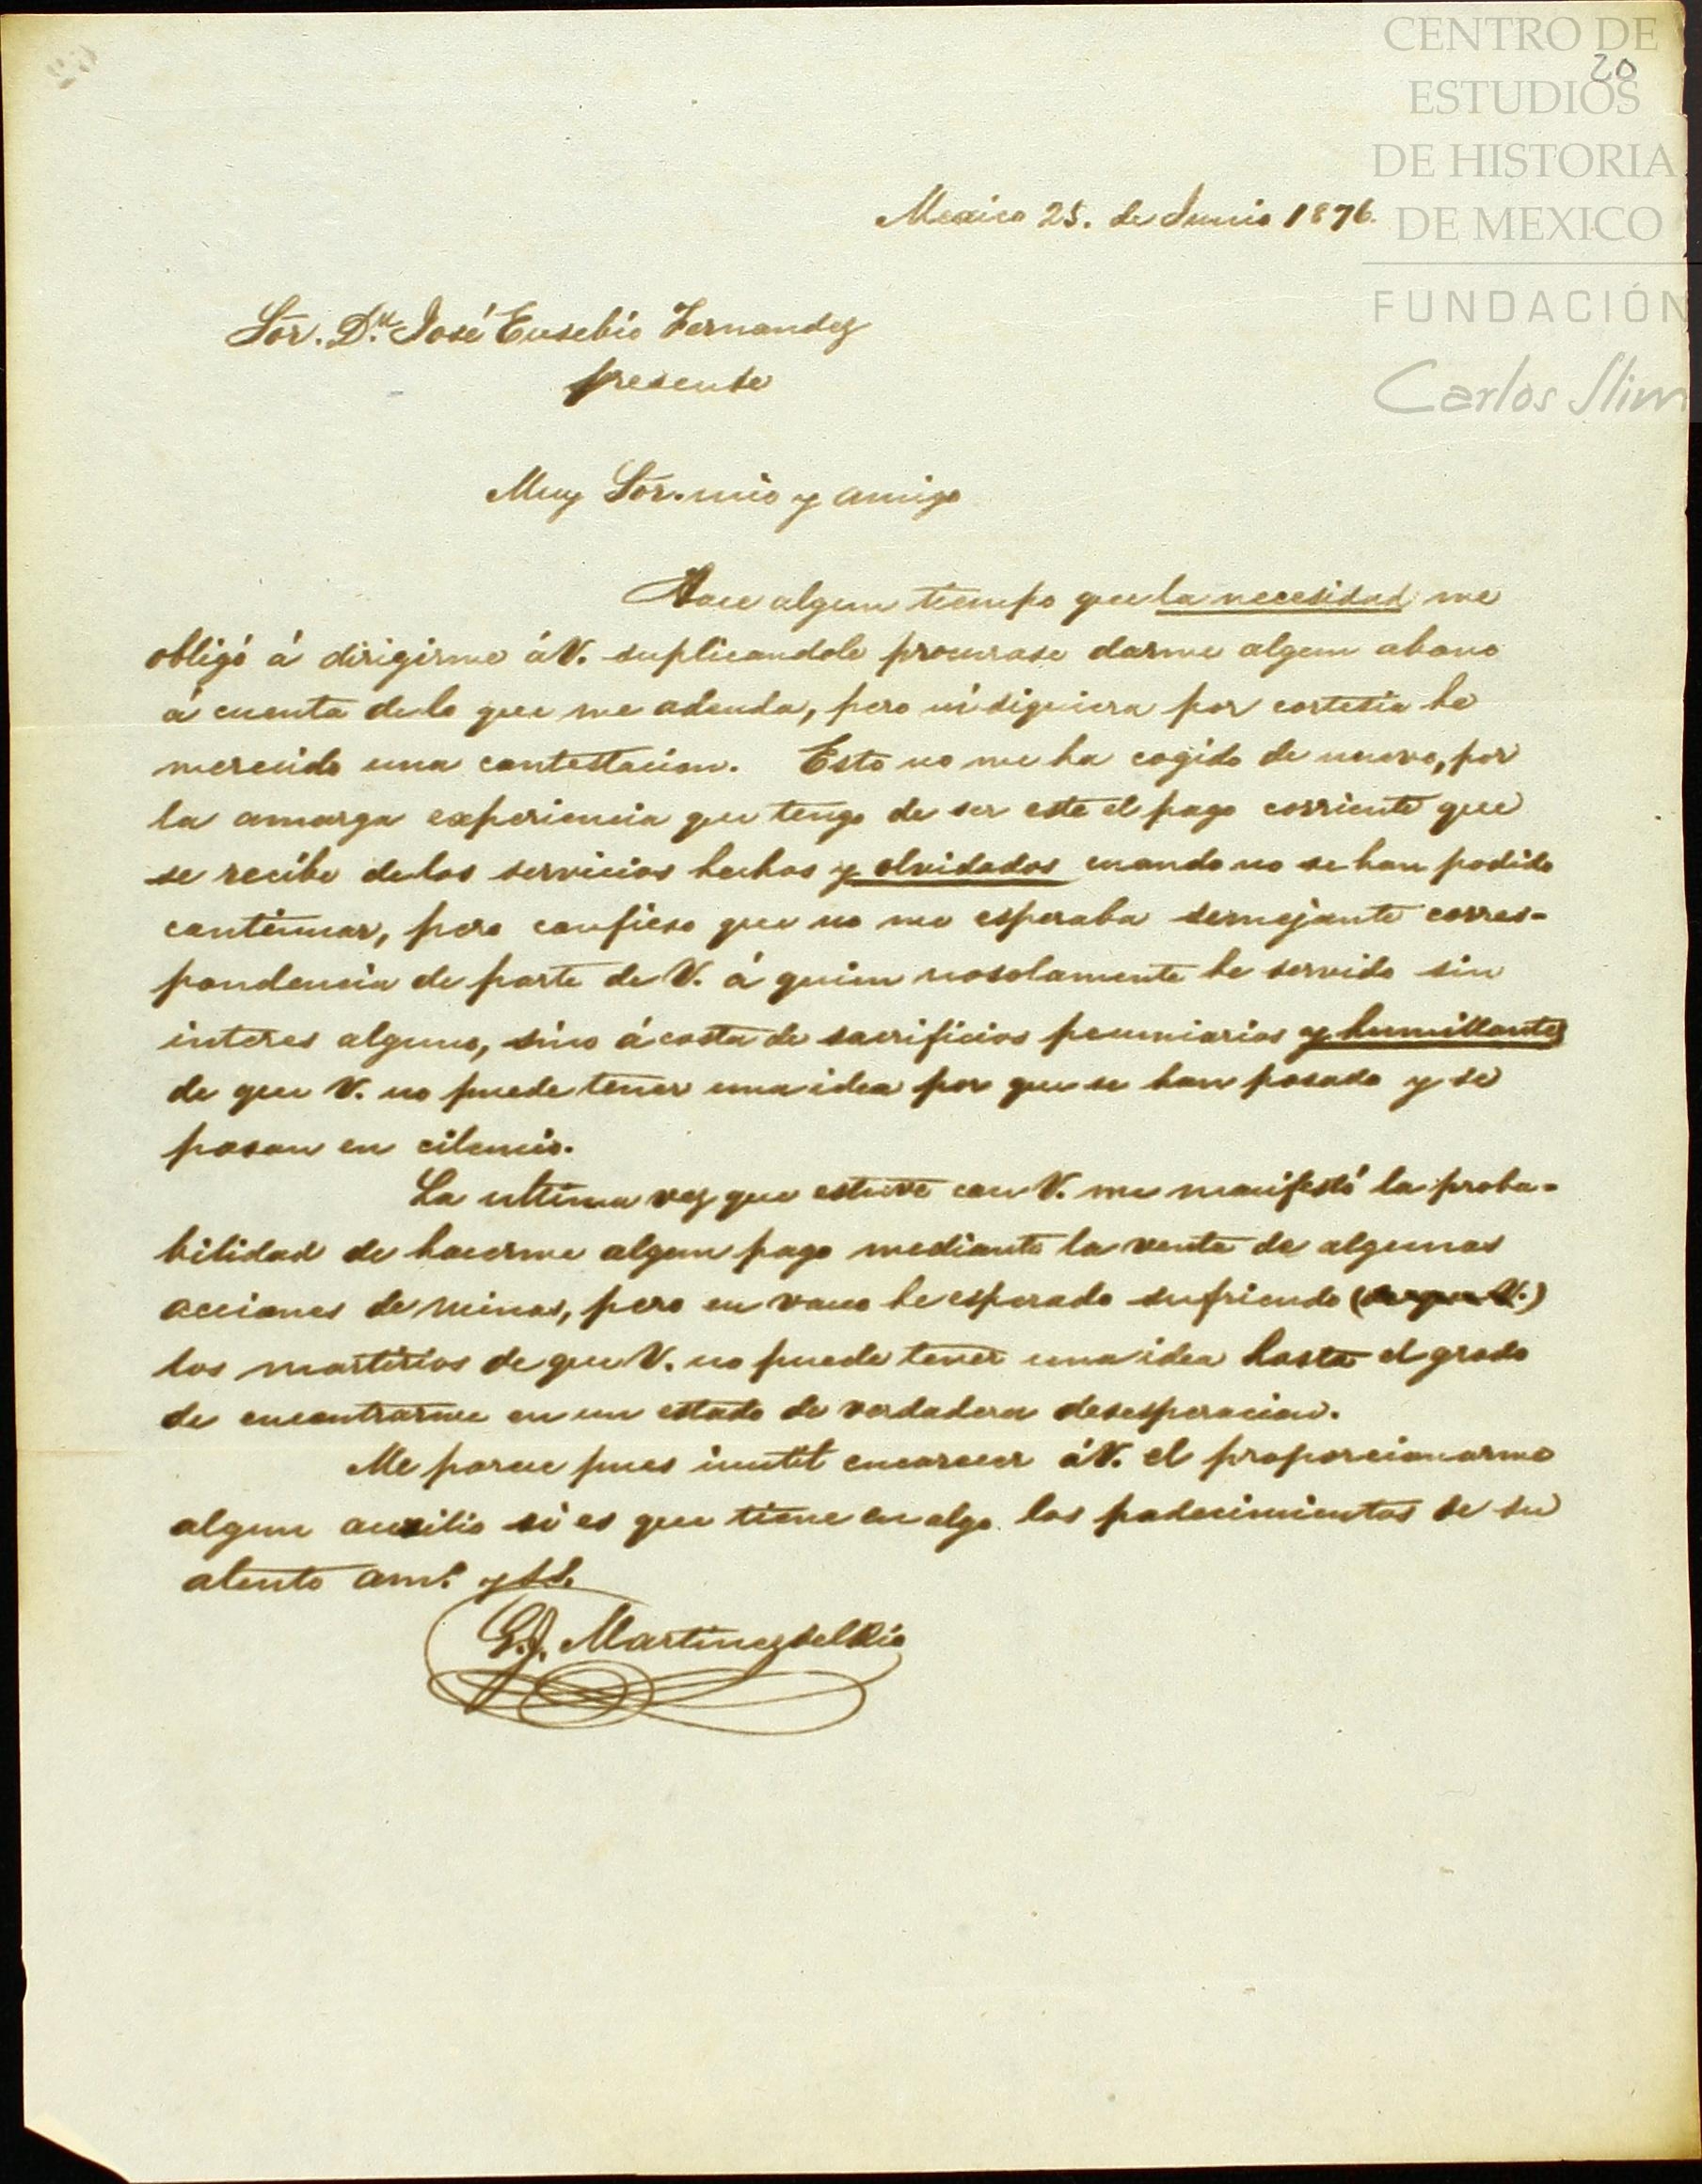 CENTRO DE
20
ESTUDIOS
DE HISTORIA
DE MEXICO
FUNDACIÓN
Carlos Slim
Mexico 25. de Junio 1876.
Sor. Dn. José Eusebio Fernandez
presente
Muy Sor. mio y amigo
Hace algun tiempo que la necesidad me
obligó á dirigirme á V. suplicandole procurase darme algun abono
á cuenta de lo que me adeuda, pero ni siquiera por cortesia he
merecido una contestacion. Esto no me ha cogido de nuevo, por
la amarga experiencia que tengo de ser este el pago corriente que
se recibe de los servicios hechos y olvidados cuando no se han podido
continuar, pero confieso que no me esperaba semejante corres-
pondencia de parte de V. á quien nosolamente he servido sin
interes alguno, sino á costa de sacrificios pecuniarios y humillantes
de que V. no puede tener una idea por que se han pasado y se
pasan en cilencio.
La ultima vez que estuve con V. me manifestó la proba-
bilidad de hacerme algun pago mediante la venta de algunas
acciones de minas, pero en vano he esperado sufriendo
los martirios de que V. no puede tener una idea hasta el grado
de encontrarme en un estado de verdadera desesperacion.
Me parece pues inutil encarecer á V. el proporcionarme
algun auxilio si es que tiene en algo los padecimientos de su
atento amo. y S.S.
G.J. Martinez del Rio